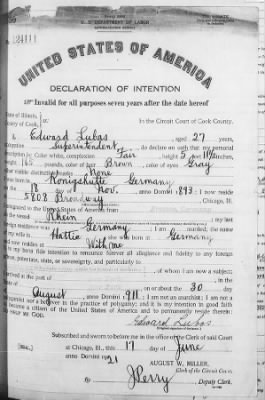 U. S. DEPARTMENT OF LABOR
UNITED STATES OF AMERICA
DECLARATION OF INTENTION
Invalid for all purposes seven years after the date hereof
State of Illinois,
County of Cook, In the Circuit Court of Cook County.
I, Edward Lubas, aged 27 years,
occupation Superintendent, do declare on oath that my personal
description is: Color white, complexion Fair, height 5 feet 11½ inches,
weight 165 pounds, color of hair Brown, color of eyes Gray
other visible distinctive marks None
Konigshutte Germany
on the 18 day of Nov., anno Domini 1893; I now reside
at 5808 Broadway, Chicago, Ill.
to the United States of America from
Rhein Germany; my last
foreign residence was Germany; I am married; the name
of my wife is Hattie; she was born at Germany
and now resides at With me
It is my bona fide intention to renounce forever all allegiance and fidelity to any foreign
prince, potentate, state, or sovereignty, and particularly to
of whom I am now a subject;
I arrived at the port of
on or about the 30 day
of August, anno Domini 1911; I am not an anarchist; I am not a
polygamist nor a believer in the practice of polygamy; and it is my intention in good faith
to become a citizen of the United States of America and to permanently reside therein:
SO HELP ME GOD.
Edward Lubas
Subscribed and sworn to before me in the office of the Clerk of said Court
[SEAL] at Chicago, Ill., this 17 day of June
anno Domini 1921
AUGUST W. MILLER,
Clerk of the Circuit Court.
By J Perry, Deputy Clerk.